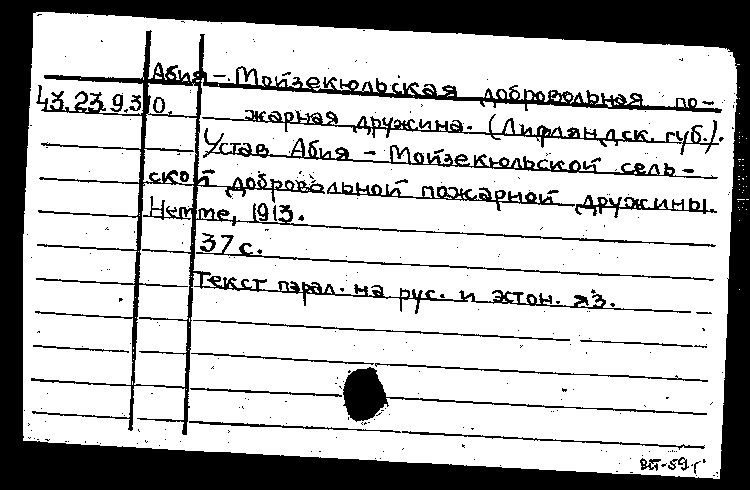 Абия – Мойзекюльская добровольная по-
43.23.9.30. жарная дружина. (Лифляндск. губ.).
Устав Абия – Мойзекюльской сель-
ской добровольной пожарной дружины.
Немме, 1913.
37 с.
Текст парал. на рус. и эстон. яз.